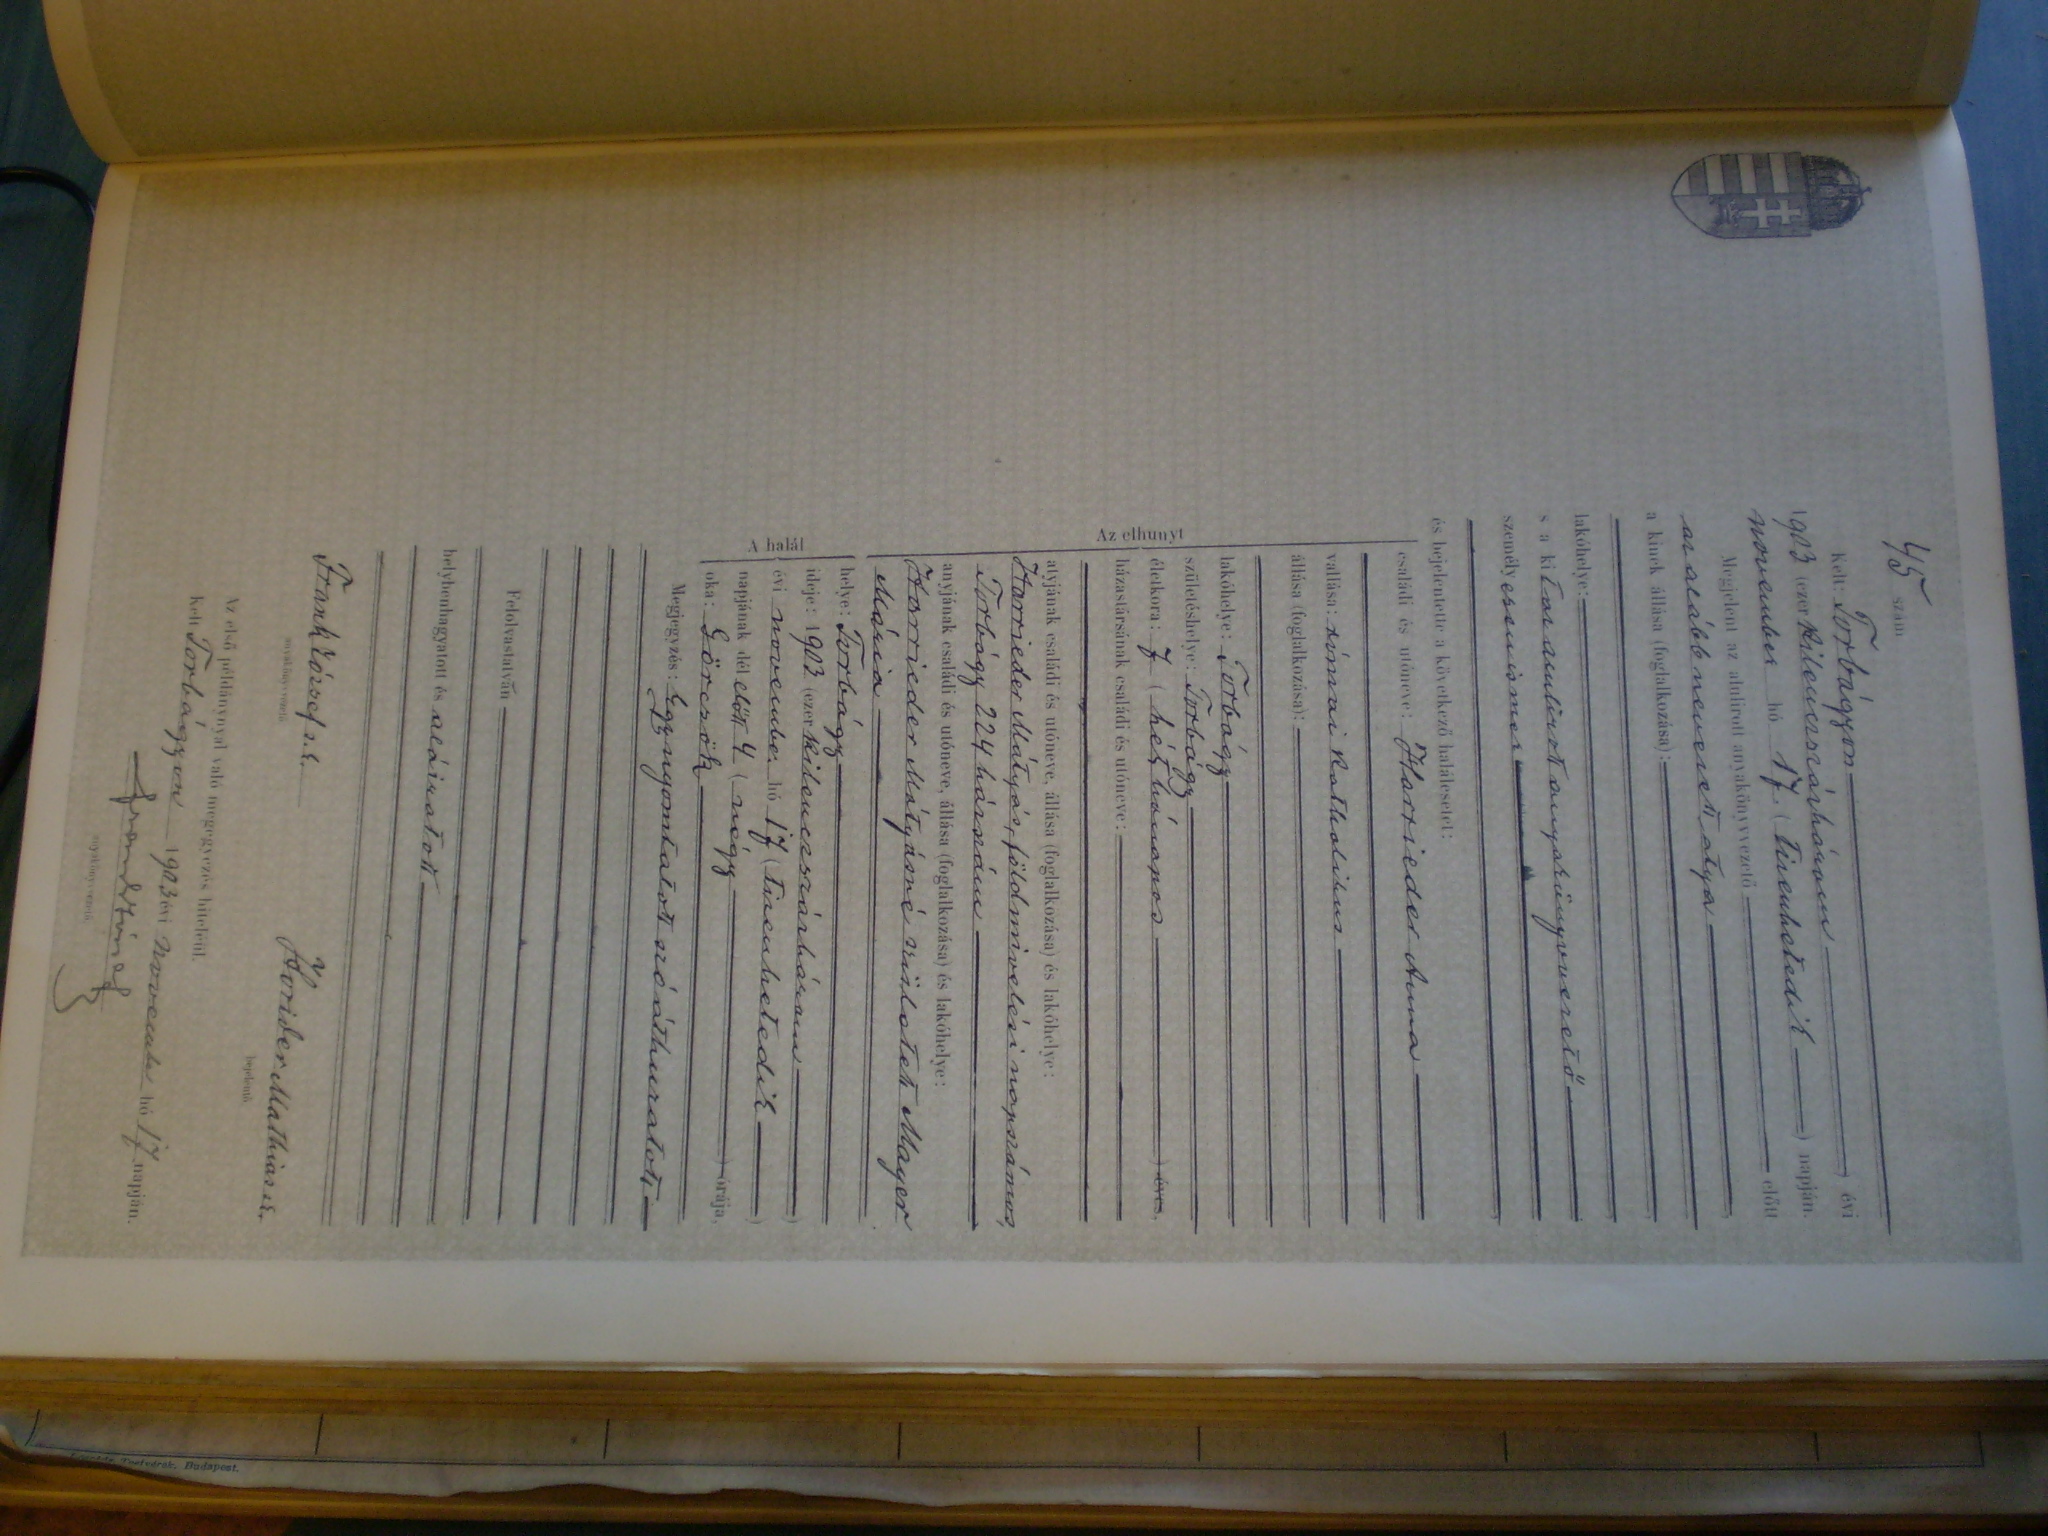 45 szám
Kelt: Torbágyon
1903 (ezer kilencszázhárom) évi
november hó 17 (tizenhetedik) napján.
Megjelent az alulirott anyakönyvvezető előtt
az alább nevezett atya
a kinek állása (foglalkozása):
lakóhelye:
s a kit az alulirott anyakönyvvezető
személyesen ismer
és bejelentette a következő halálesetet:
Az elhunyt
családi és utóneve: Harrieder Anna
vallása: római katholikus
állása (foglalkozása):
lakóhelye: Torbágy
születéshelye: Torbágy
életkora: 7 (hét hónapos) éves.
házastársának családi és utóneve:
atyjának családi és utóneve, állása (foglalkozása) és lakóhelye:
Harrieder Mátyás, földmivelési napszámos,
Torbágy 224 házszám
anyjának családi és utóneve, állása (foglalkozása) és lakóhelye:
Harrieder Mátyásné született Mayer
Mária
A halál
helye: Torbágy
ideje: 1903 (ezer kilencszázhárom)
évi november hó 17 (tizenhetedik)
napjának dél előtt 4 (négy) órája,
oka: Görcsök
Megjegyzés: Egy nyomtatott szó áthuzatott
Felolvastatván
helybenhagyatott és aláiratott
Frank József s.k. Horider Mathias s.k.
anyakönyvvezető bejelentő
Az első példánynyal való megegyezés hiteléül.
Kelt Torbágyon 1903 évi november hó 17 napján.
Frank József
anyakönyvvezető
Testvérek, Budapest.